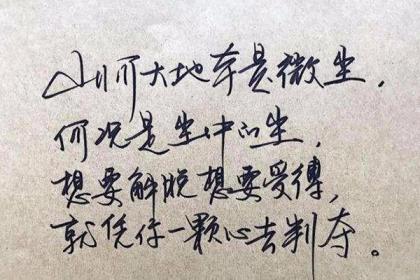 山河大地本是微尘，
何况是尘中的尘，
想要解脱想要受缚，
就凭你一颗心去判夺。